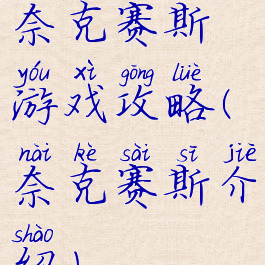 奈克赛斯
yóu xì gōng lüè
游戏攻略(
nài kè sài sī jiè
奈克赛斯介
shào
绍)